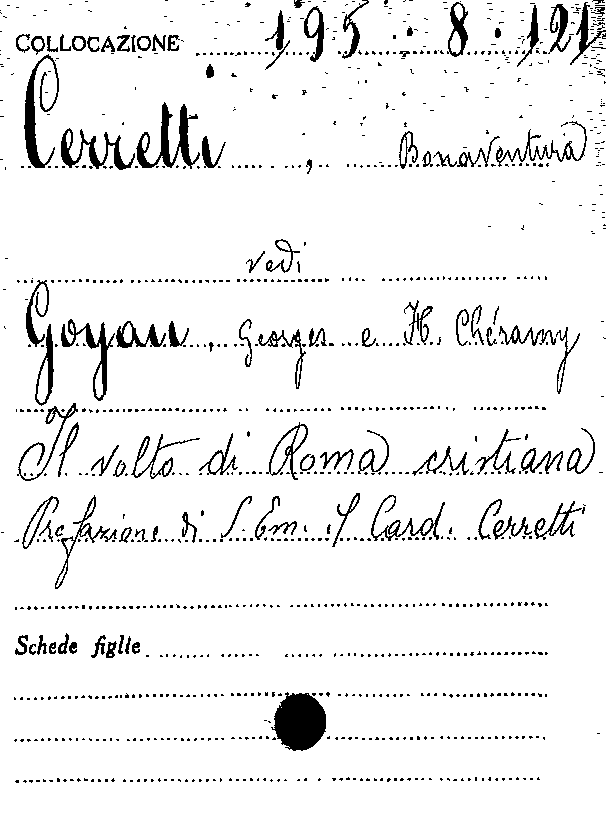 COLLOCAZIONE 195. 8. 121
Cerretti, Bonaventura
vedi
Goyau, Georges e H. Chéramy
Il volto di Roma cristiana
Prefazione di S. Em. il Card. Cerretti
Schede figlie